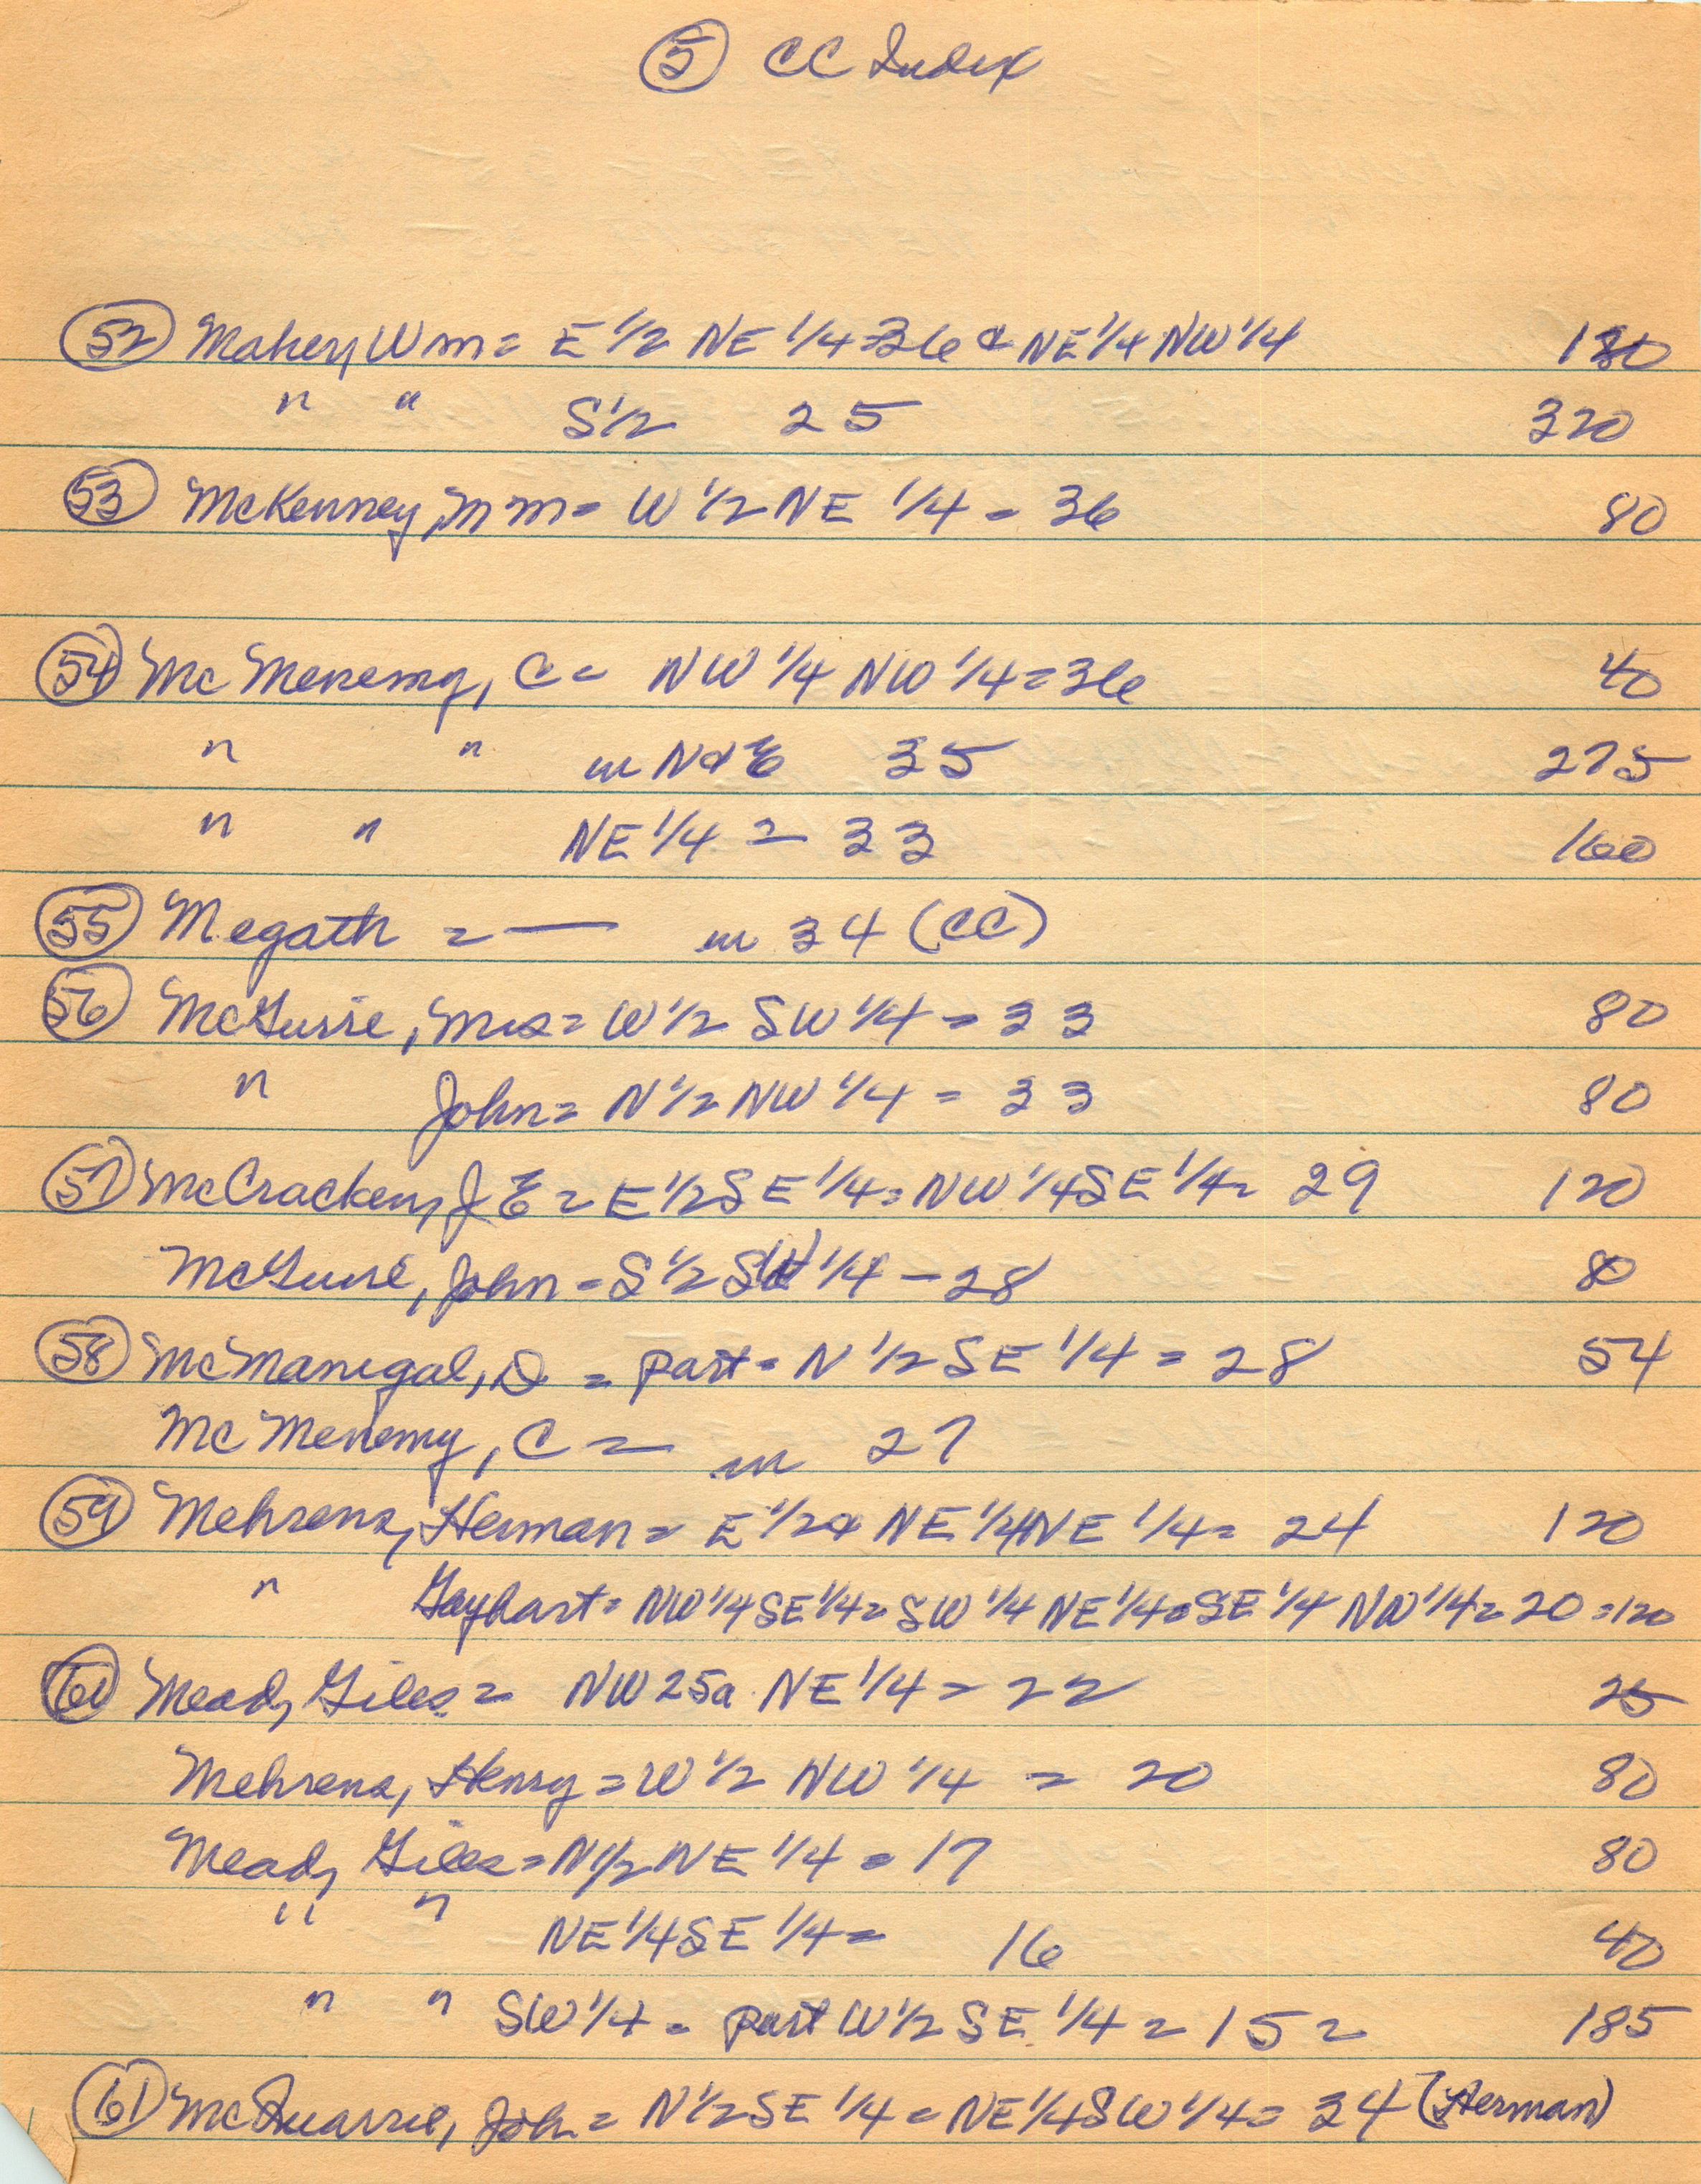 (5) CC Index
(52) Mahey, Wm = E 1/2 NE 1/4 = 36 & NE 1/4 NW 1/4
" " S 1/2 25 320
(53) McKenney, M m = W 1/2 NE 1/4 = 36 80
(54) Mc Menemy, C = NW 1/4 NW 1/4 = 36 40
" " in N & E 35 275
" " NE 1/4 = 33 160
(55) Megath = — in 34 (CC)
(56) McGuire, Mrs = W 1/2 SW 1/4 = 33 80
" John = N 1/2 NW 1/4 = 33 80
(57) McCracken, J E = E 1/2 SE 1/4 = NW 1/4 SE 1/4 = 29 120
McGuire, John = S 1/2 1/4 - 28 80
(58) McManigal, D = part = N 1/2 SE 1/4 = 28 54
Mc Menemy, C = in 27
(59) Mehrens, Herman = E 1/2 & NE 1/4 NE 1/4 = 24 120
" Gayhart = NW 1/4 SE 1/4 = SW 1/4 NE 1/4 = SE 1/4 NW 1/4 = 20 = 120
(60) Mead, Giles = NW 25a NE 1/4 = 22 25
Mehrens, Henry = W 1/2 NW 1/4 = 20 80
Mead, Giles = N 1/2 NE 1/4 = 17 80
" " NE 1/4 SE 1/4 = 16 40
" " SW 1/4 = part W 1/2 SE 1/4 = 15 = 185
(61) McQuarrie, John = N 1/2 SE 1/4 = NE 1/4 SW 1/4 = 24 (Herman)